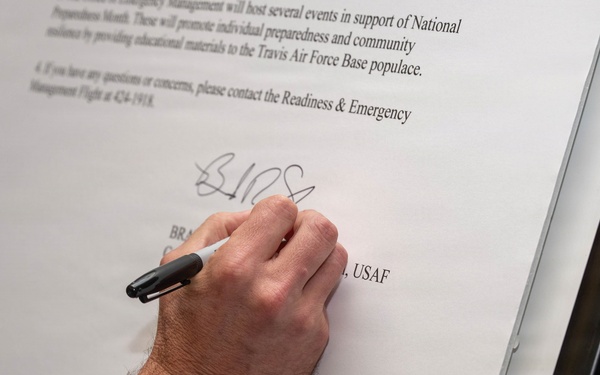 Emergency Management will host several events in support of National
Preparedness Month. These will promote individual preparedness and community
resilience by providing educational materials to the Travis Air Force Base populace.
4. If you have any questions or concerns, please contact the Readiness & Emergency
Management Flight at 424-1918.
BRA
, USAF